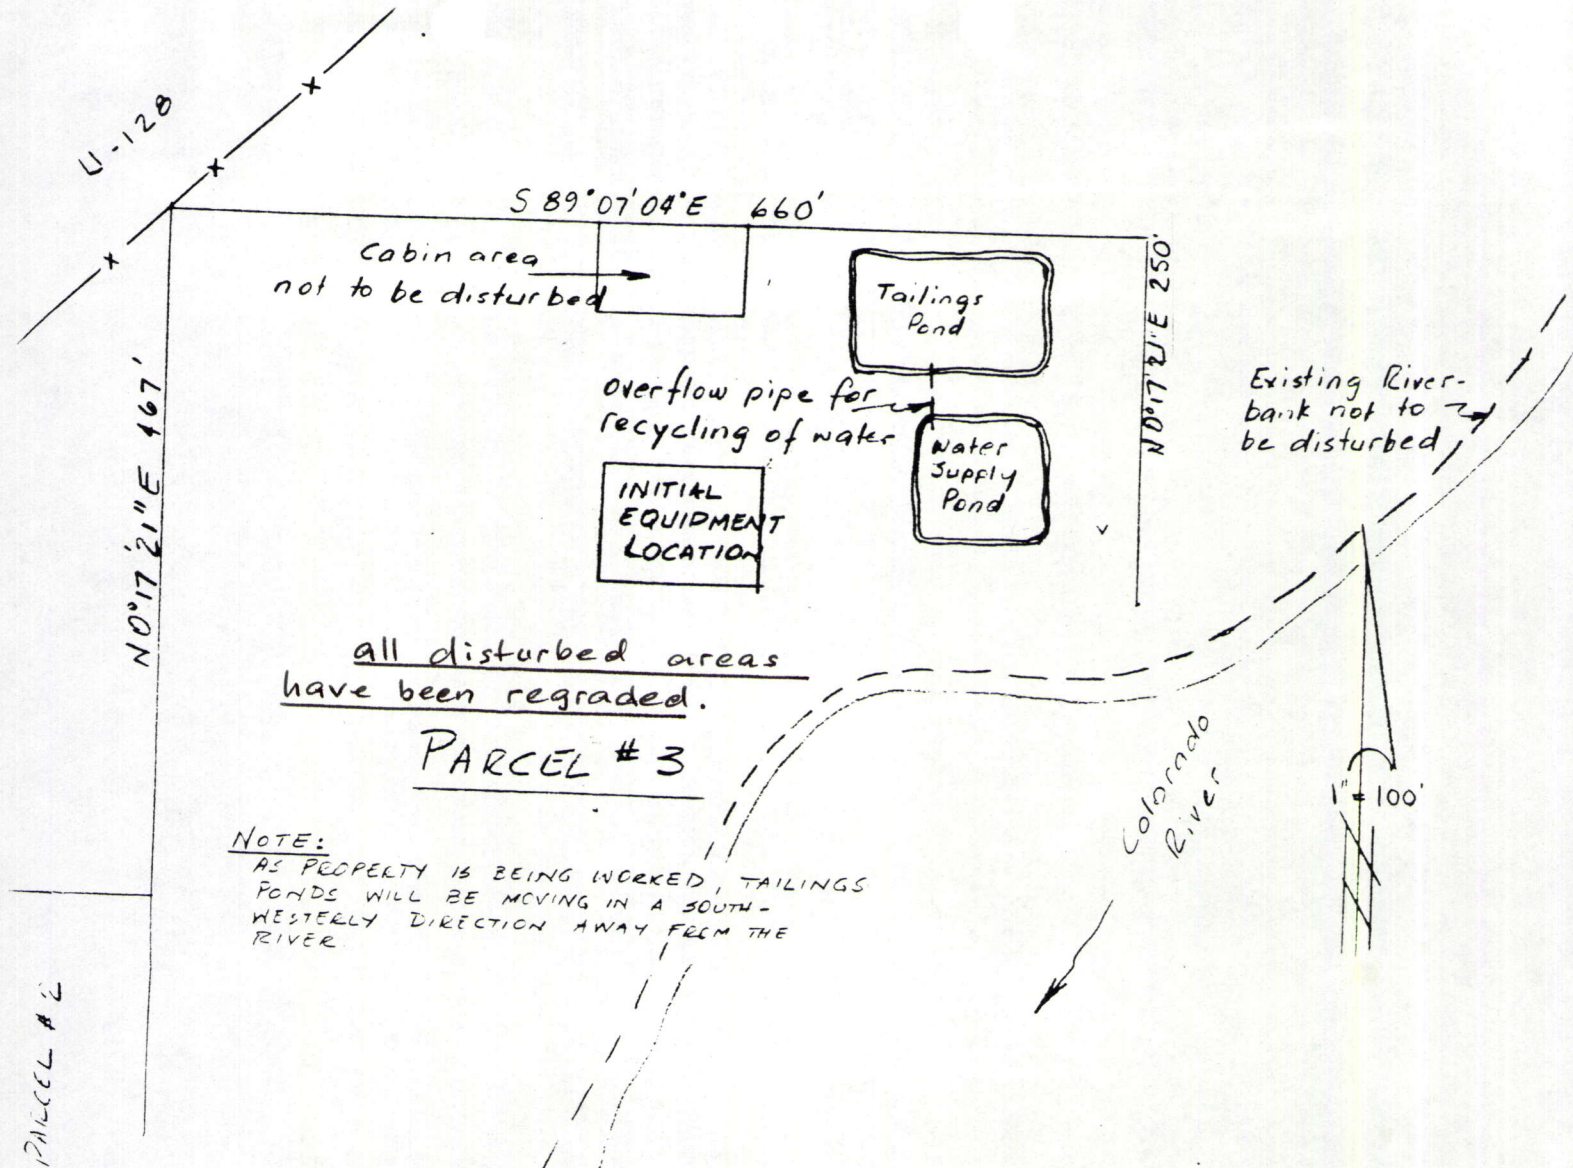 U-128
S 89°07'04"E 660'
Cabin area
not to be disturbed
Tailings
Pond
N0°17'21"E 250'
Existing River-
bank not to
be disturbed
overflow pipe for
recycling of water
Water
Supply
Pond
INITIAL
EQUIDMENT
LOCATION
N0°17'21"E 467'
all disturbed areas
have been regraded.
PARCEL #3
Colorado
River
1" = 100'
NOTE:
AS PROPERTY IS BEING WORKED, TAILINGS
PONDS WILL BE MOVING IN A SOUTH-
WESTERLY DIRECTION AWAY FROM THE
RIVER
PARCEL #